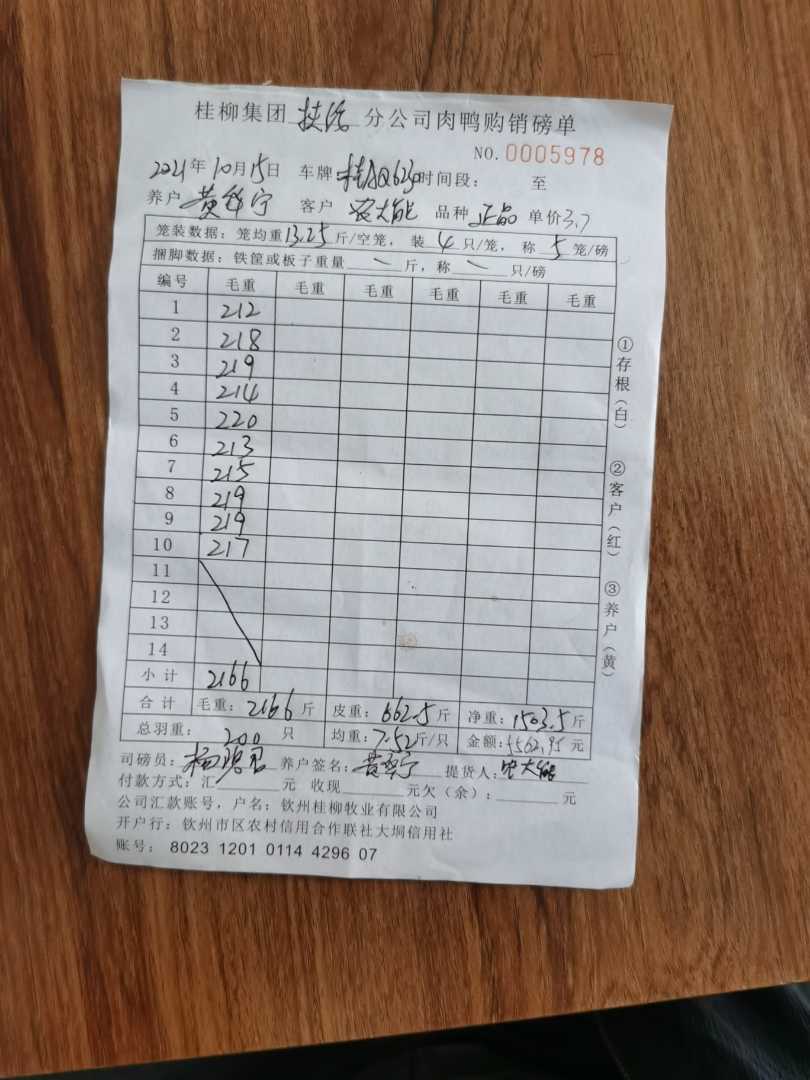 桂柳集团 扶绥 分公司肉鸭购销磅单
NO.0005978
2021年10月15日 车牌 时间段： 至
养户 黄华宁 客户 农大能 品种 正品 单价3.7
笼装数据：笼均重13.25斤/空笼，装 4 只/笼，称 5 笼/磅
捆脚数据：铁筐或板子重量 \ 斤，称 \ 只/磅
编号 毛重 毛重 毛重 毛重 毛重 毛重
1 212
2 218
3 219
4 214
5 220
6 213
7 215
8 219
9 219
10 217
11
12
13
14
小计 2166
合计 毛重：2166斤 皮重：662.5斤 净重：1503.5斤
总羽重： 200 只 均重：7.52斤/只 金额：5562.95元
司磅员： 养户签名：黄华宁 提货人：农大能
付款方式：汇 元 收现 元欠（余）： 元
公司汇款账号，户名：钦州桂柳牧业有限公司
开户行：钦州市区农村信用合作联社大垌信用社
账号： 8023 1201 0114 4296 07
①存根（白） ②客户（红） ③养户（黄）